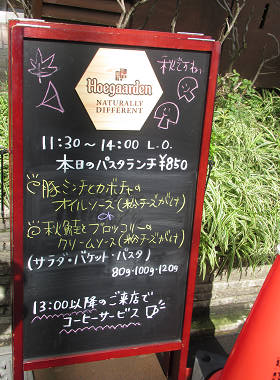 Hoegaarden
NATURALLY
DIFFERENT
秋ですねぇ
11:30~14:00 L.O.
本日のパスタランチ ¥850
豚ミンチとカボチャの
オイルソース(粉チーズがけ)
or
秋鮭とブロッコリーの
クリームソース(粉チーズがけ)
(サラダ・バケット・パスタ)
80g・100g・120g
13:00以降のご来店で
コーヒーサービス